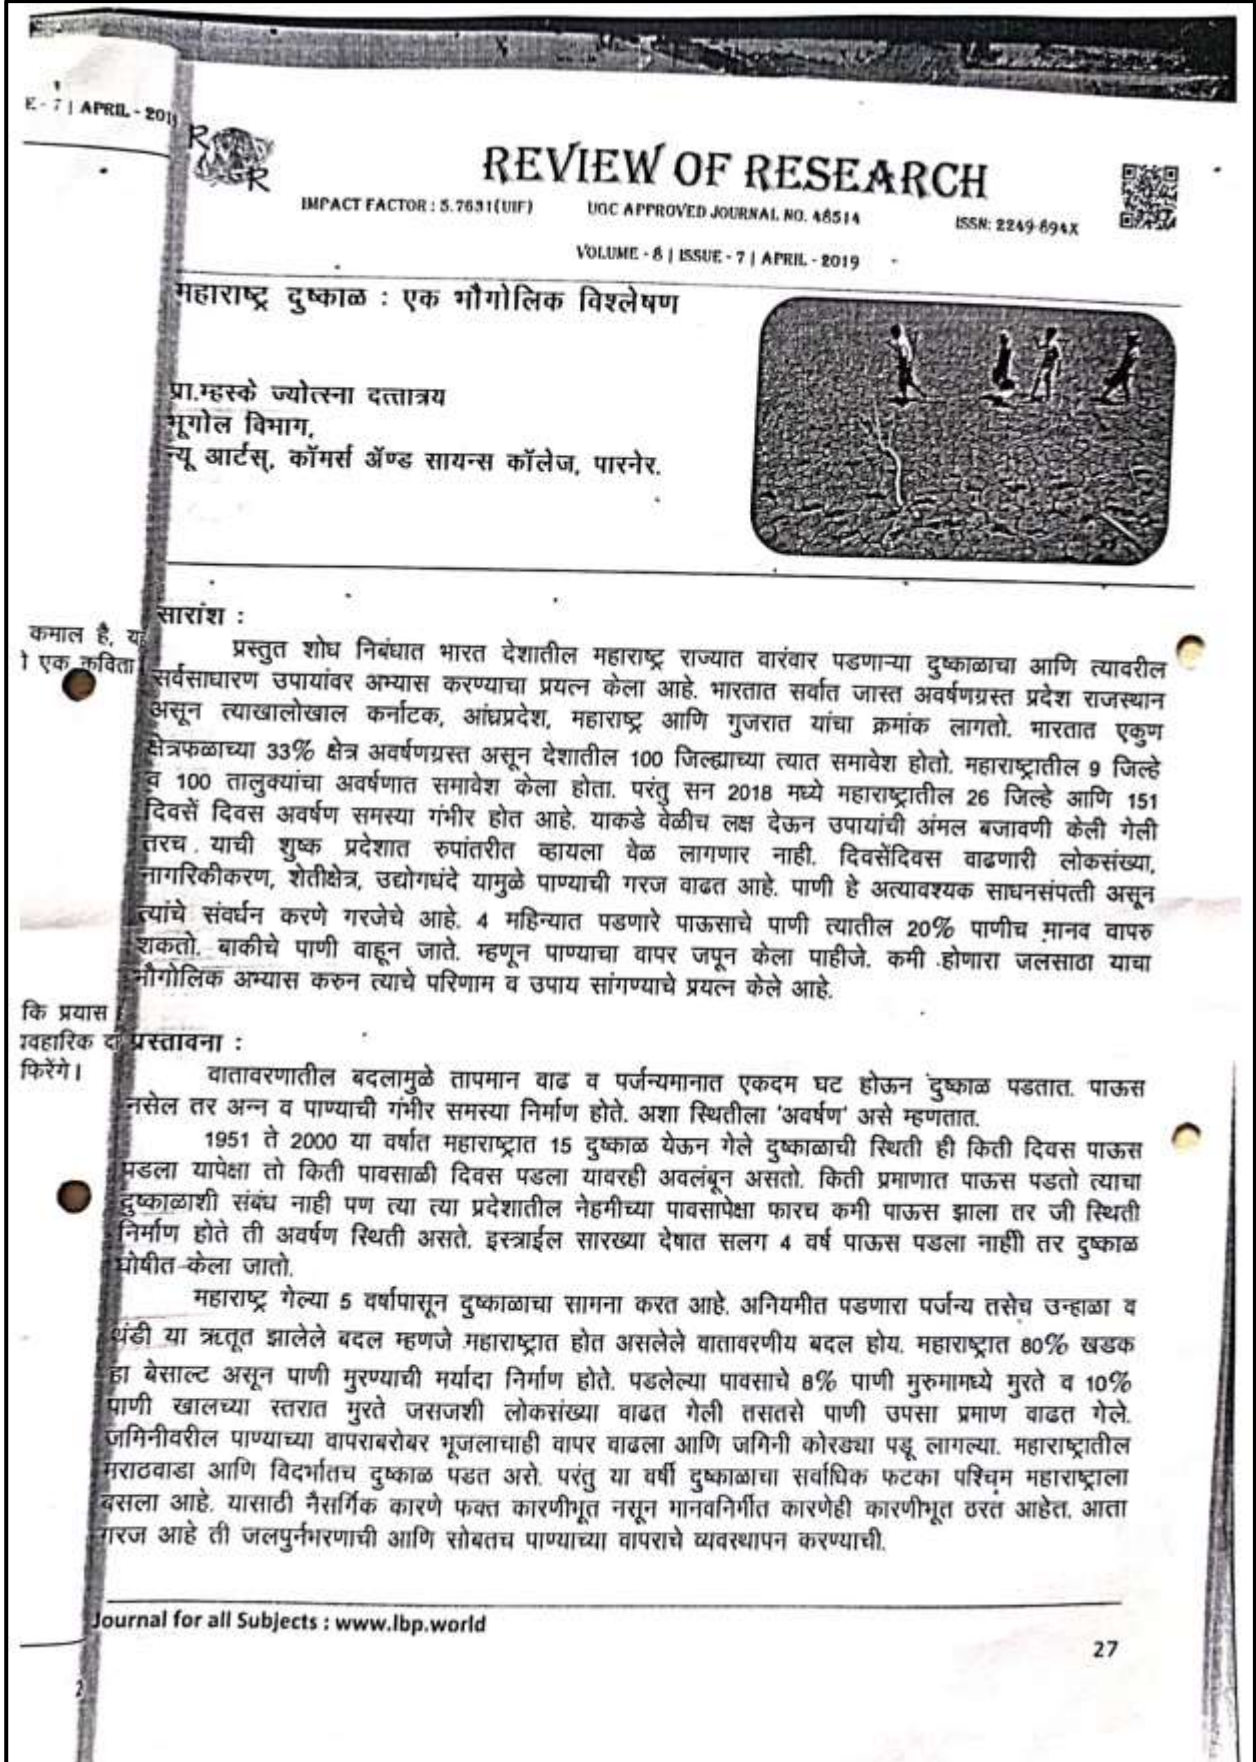 E - 7 | APRIL - 2019
REVIEW OF RESEARCH
IMPACT FACTOR : 5.7631(UIF) UGC APPROVED JOURNAL NO. 48514 ISSN: 2249-894X
VOLUME - 8 | ISSUE - 7 | APRIL - 2019
महाराष्ट्र दुष्काळ : एक भौगोलिक विश्लेषण
प्रा.म्हस्के ज्योत्स्ना दत्तात्रय
भूगोल विभाग,
न्यू आर्टस्, कॉमर्स ॲण्ड सायन्स कॉलेज, पारनेर.
कमाल है, यह
एक कविता
सारांश :
प्रस्तुत शोध निबंधात भारत देशातील महाराष्ट्र राज्यात वारंवार पडणाऱ्या दुष्काळाचा आणि त्यावरील
सर्वसाधारण उपायांवर अभ्यास करण्याचा प्रयत्न केला आहे. भारतात सर्वात जास्त अवर्षणग्रस्त प्रदेश राजस्थान
असून त्याखालोखाल कर्नाटक, आंध्रप्रदेश, महाराष्ट्र आणि गुजरात यांचा क्रमांक लागतो. भारतात एकुण
क्षेत्रफळाच्या 33% क्षेत्र अवर्षणग्रस्त असून देशातील 100 जिल्ह्याच्या त्यात समावेश होतो. महाराष्ट्रातील 9 जिल्हे
व 100 तालुक्यांचा अवर्षणात समावेश केला होता. परंतु सन 2018 मध्ये महाराष्ट्रातील 26 जिल्हे आणि 151
दिवसें दिवस अवर्षण समस्या गंभीर होत आहे. याकडे वेळीच लक्ष देऊन उपायांची अंमल बजावणी केली गेली
तरच . याची शुष्क प्रदेशात रुपांतरीत व्हायला वेळ लागणार नाही. दिवसेंदिवस वाढणारी लोकसंख्या,
नागरिकीकरण, शेतीक्षेत्र, उद्योगधंदे यामुळे पाण्याची गरज वाढत आहे. पाणी हे अत्यावश्यक साधनसंपत्ती असून
त्यांचे संवर्धन करणे गरजेचे आहे. 4 महिन्यात पडणारे पाऊसाचे पाणी त्यातील 20% पाणीच मानव वापरु
शकतो. बाकीचे पाणी वाहून जाते. म्हणून पाण्याचा वापर जपून केला पाहीजे. कमी होणारा जलसाठा याचा
भौगोलिक अभ्यास करुन त्याचे परिणाम व उपाय सांगण्याचे प्रयत्न केले आहे.
कि प्रयास
फिरेंगे।
प्रस्तावना :
वातावरणातील बदलामुळे तापमान वाढ व पर्जन्यमानात एकदम घट होऊन दुष्काळ पडतात. पाऊस
नसेल तर अन्न व पाण्याची गंभीर समस्या निर्माण होते. अशा स्थितीला 'अवर्षण' असे म्हणतात.
1951 ते 2000 या वर्षात महाराष्ट्रात 15 दुष्काळ येऊन गेले दुष्काळाची स्थिती ही किती दिवस पाऊस
पडला यापेक्षा तो किती पावसाळी दिवस पडला यावरही अवलंबून असतो. किती प्रमाणात पाऊस पडतो त्याचा
दुष्काळाशी संबंध नाही पण त्या त्या प्रदेशातील नेहमीच्या पावसापेक्षा फारच कमी पाऊस झाला तर जी स्थिती
निर्माण होते ती अवर्षण स्थिती असते. इस्त्राईल सारख्या देषात सलग 4 वर्ष पाऊस पडला नाही तर दुष्काळ
घोषीत केला जातो.
महाराष्ट्र गेल्या 5 वर्षापासून दुष्काळाचा सामना करत आहे. अनियमीत पडणारा पर्जन्य तसेच उन्हाळा व
थंडी या ऋतूत झालेले बदल म्हणजे महाराष्ट्रात होत असलेले वातावरणीय बदल होय. महाराष्ट्रात 80% खडक
हा बेसाल्ट असून पाणी मुरण्याची मर्यादा निर्माण होते. पडलेल्या पावसाचे 8% पाणी मुरुमामध्ये मुरते व 10%
पाणी खालच्या स्तरात मुरते जसजशी लोकसंख्या वाढत गेली तसतसे पाणी उपसा प्रमाण वाढत गेले.
जमिनीवरील पाण्याच्या वापराबरोबर भूजलाचाही वापर वाढला आणि जमिनी कोरड्या पडू लागल्या. महाराष्ट्रातील
मराठवाडा आणि विदर्भातच दुष्काळ पडत असे. परंतु या वर्षी दुष्काळाचा सर्वाधिक फटका पश्चिम महाराष्ट्राला
बसला आहे. यासाठी नैसर्गिक कारणे फक्त कारणीभूत नसून मानवनिर्मीत कारणेही कारणीभूत ठरत आहेत. आता
गरज आहे ती जलपुर्नभरणाची आणि सोबतच पाण्याच्या वापराचे व्यवस्थापन करण्याची.
Journal for all Subjects : www.lbp.world
27